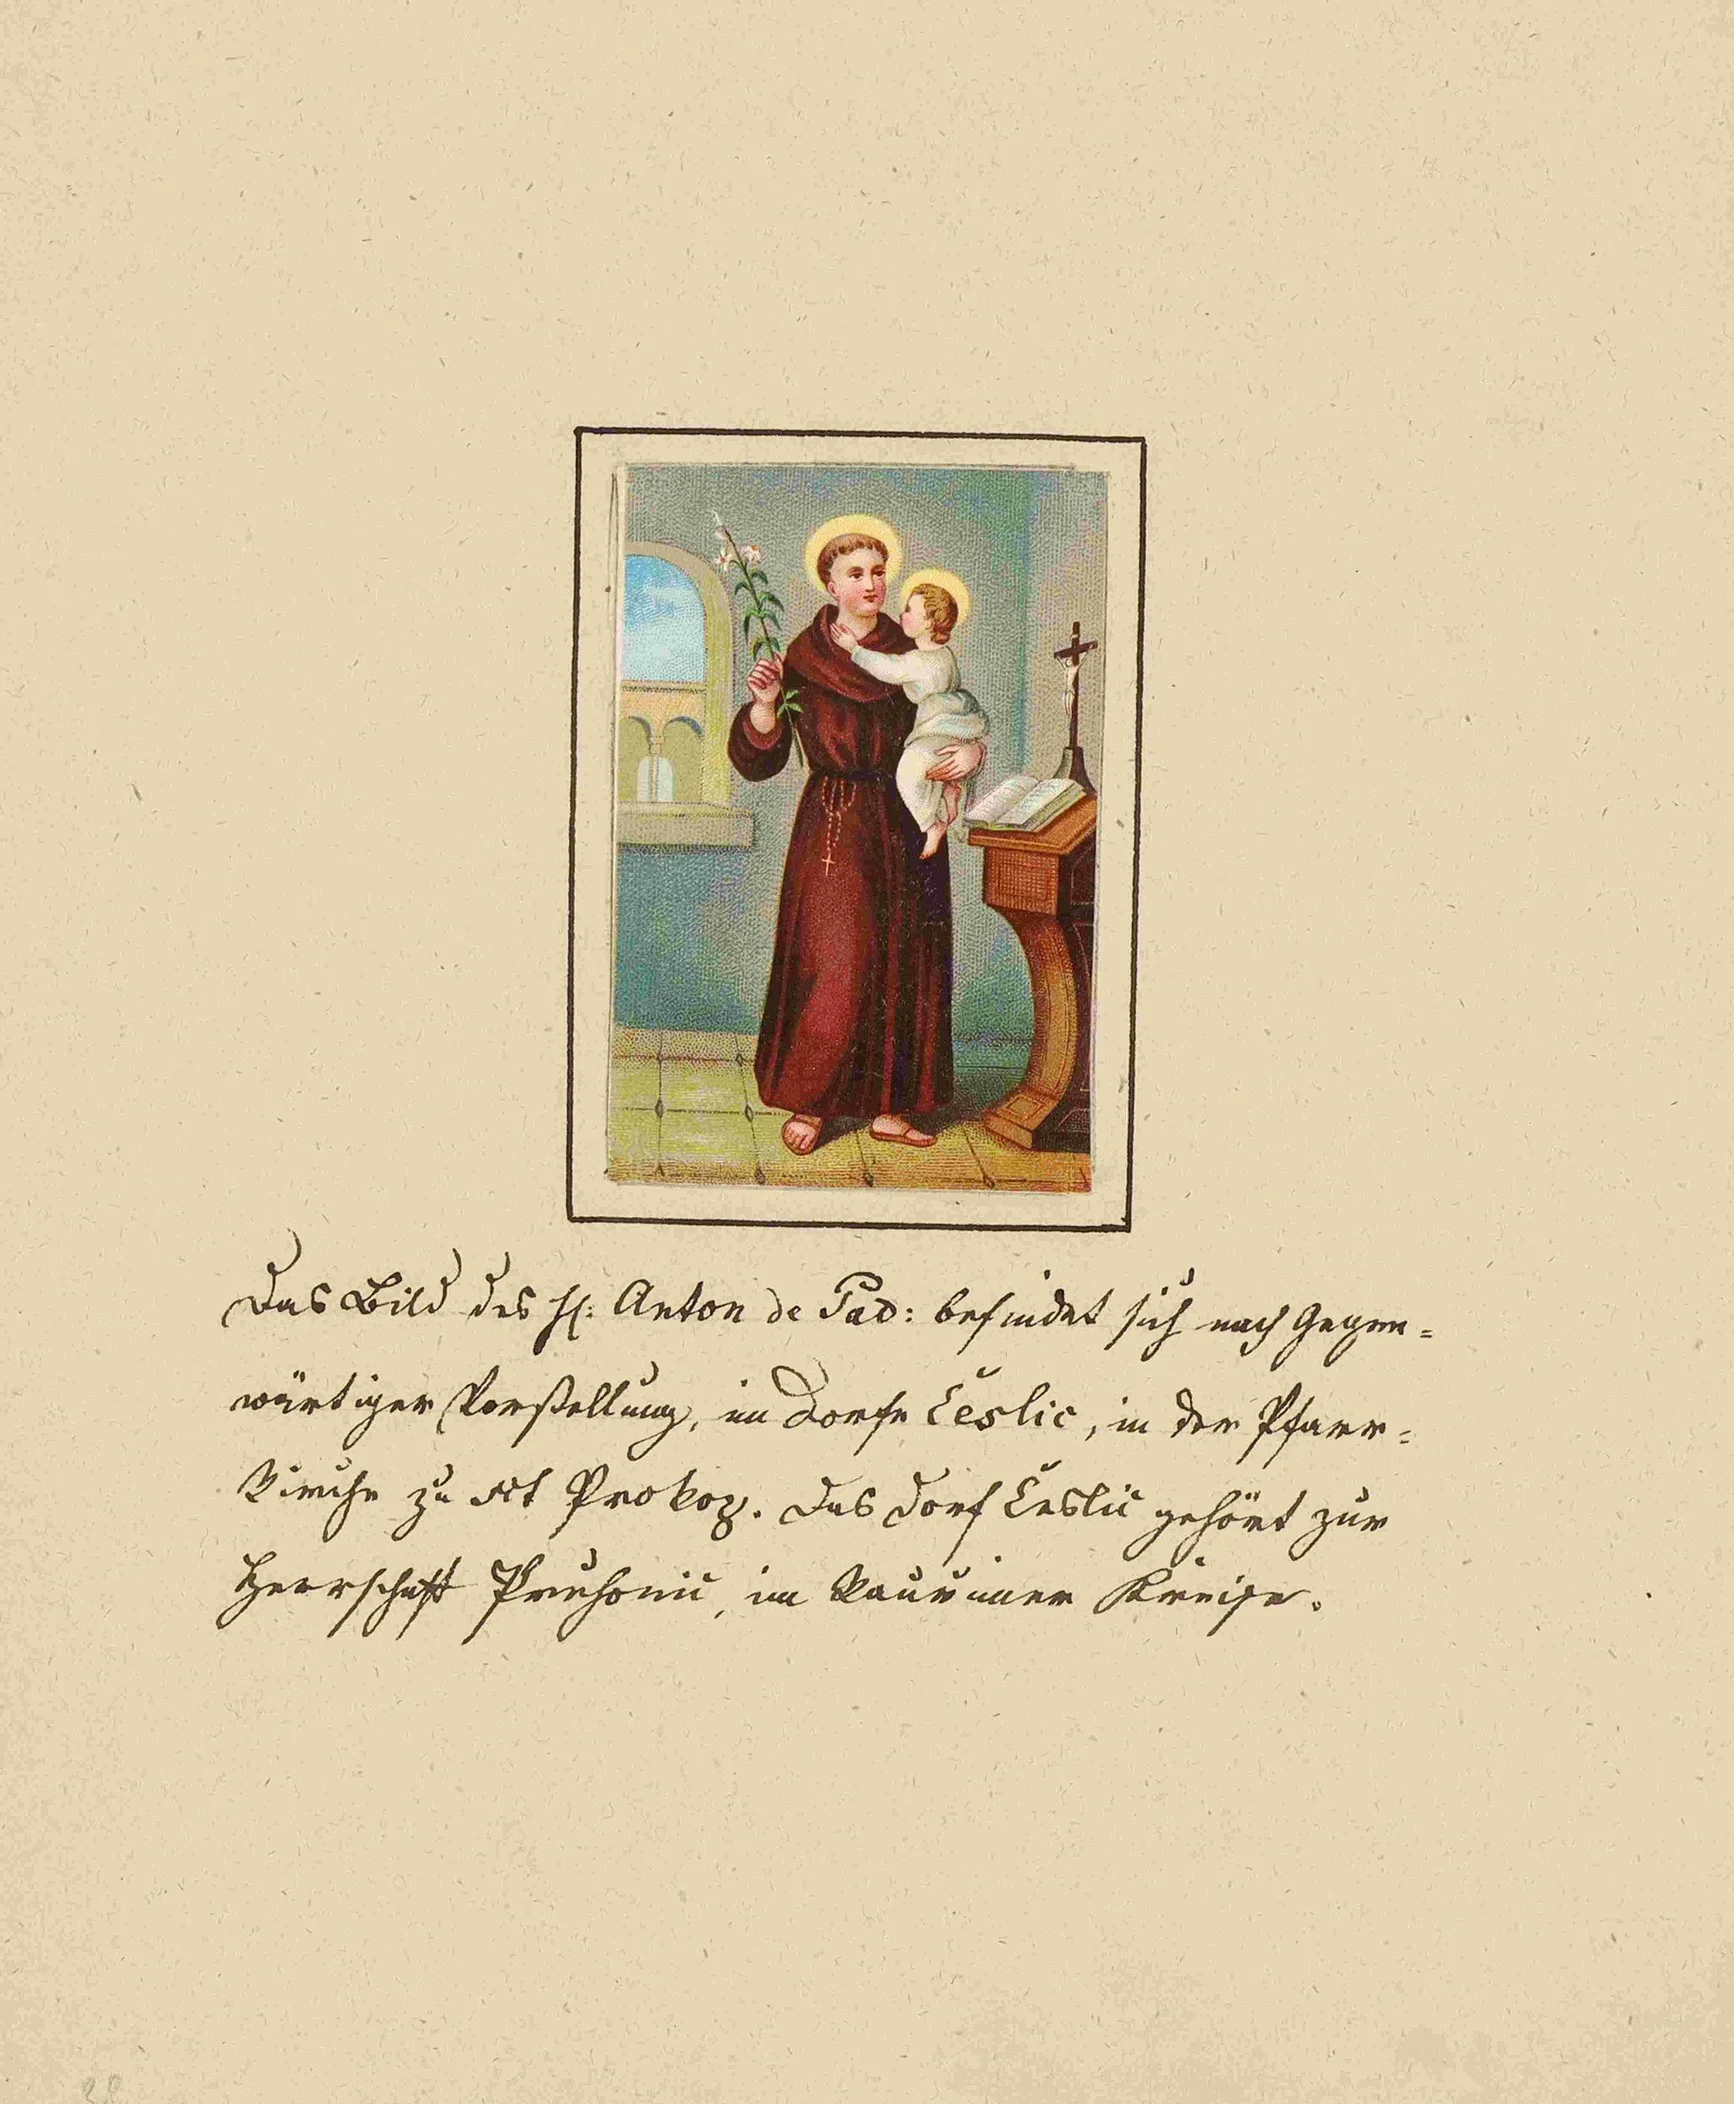 Das Bild des H: Anton de Pad: befindet sich nach Gegen=
wärtiger Vorstellung, im Dorfe Česlic, in der Pfarr=
kirche zu Sct Prokop. Das Dorf Česlic gehört zur
Herrschaft Pruhonic, im Kauřimer Kreise.